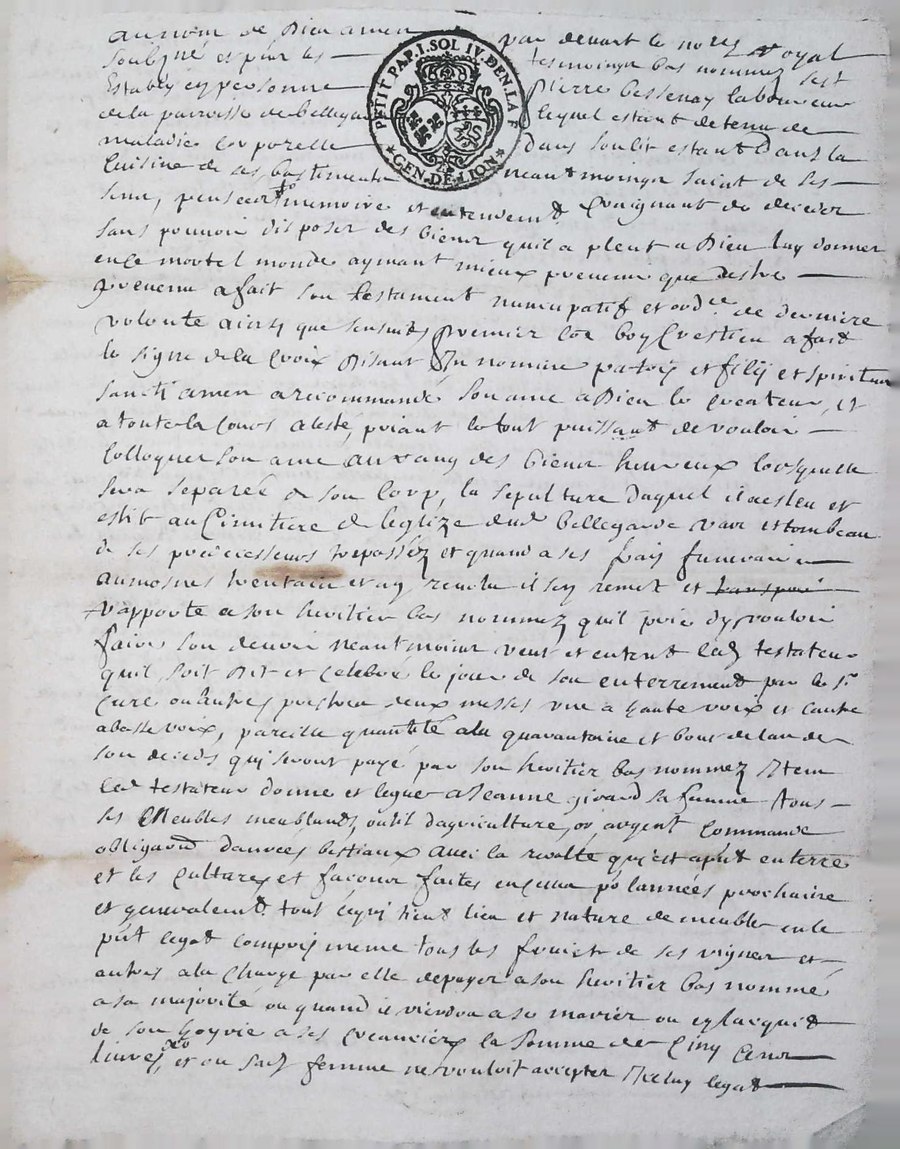 au nom de Dieu amen par devant le no.re Royal
soubsigné et p.nt les tesmoings bas nommez s'est
Estably en personne Pierre bessenay laboureur
de la parroisse de bellega lequel estant detenu de
maladie corporelle dans son lit estant dans la
Cuisine de ses bastiments neantmoings saint de ses
sens, pensée memoire et entendem.t Craignant de deceder
sans pouvoir disposer des biens quil a pleut a Dieu luy donner
en ce mortel monde aymant mieux prevenir que destre
prevenu a fait son testament nuncupatif et ord.ce de derniere
volonté ainsy que sensuit, premier Co.e bon Crestien a fait
le signe de la Croix disant In nomine patris et filij et spiritus
sancti amen a recommandé son ame a Dieu le Createur, et
a toute la Cours celeste, priant le tout puissant de vouloir
Colloquer son ame au rang des biens heureux lorsquelle
sera separée de son Corp, la sepulture duquel il a esleu et
eslit au Cimitiere de leglize dud bellegarde vave et tombeau
de ses predecesseurs trepassez et quand a ses frais funeraire
aumosnes trentain et an revolu il sen remet et
rapporte a son heritier bas nommez quil prie dy vouloir
faire son devoir neantmoins veut et entend led testateur
quil soit dit et celebré le jour de son enterrement par le s.r
Curé ou autres prestres deux messes une a haute voix et lautre
a basse voix, pareille quantité a la quarantaine et bout de lan de
son deceds qui seront payé par son heritier bas nommez Item
led testateur donne et legue a Jeanne girard sa femme tous
ses Meubles meublants, outil dagriculture, or, argent Commande
obligaon danrées bestiaux avec la recolte qui est a p.nt en terre
et les Cultures et façons faites en p.r lannées prochaine
et generalem.t tout ce qui tient lieu et nature de meuble en le
p.nt legat Compris meme tous les fruict de ses vignes et
autres a la charge par elle de payer a son heritier bas nommé
a sa majorité ou quand il viendra a se marier ou en lacquit
de son hoyrie a ses Creanciers la somme de Cinq Cent
livres, et ou sad femme ne voudroit accepter led legat
PETIT PAP. I. SOL IV. DEN. LA F
GEN. DE LION